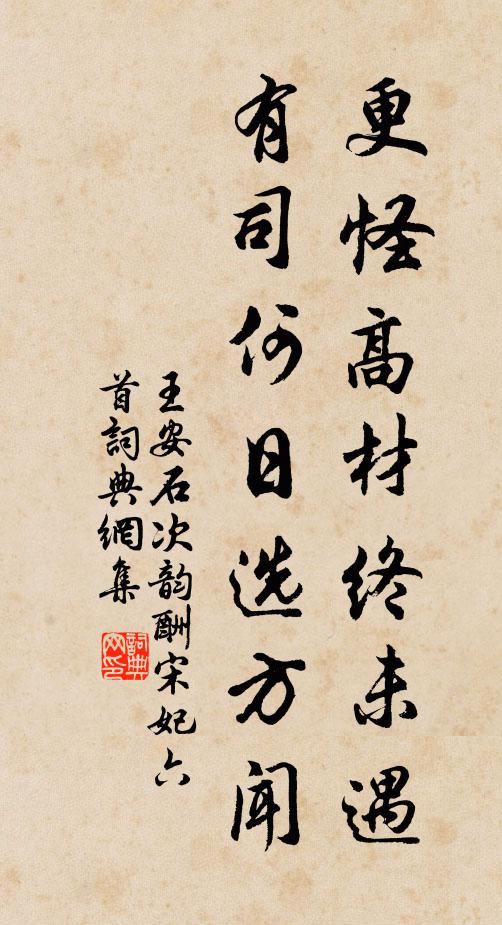 更怪高材终未遇
有司何日选方闻
王安石次韵酬宋妃六
首詞典網集
詞典
网印